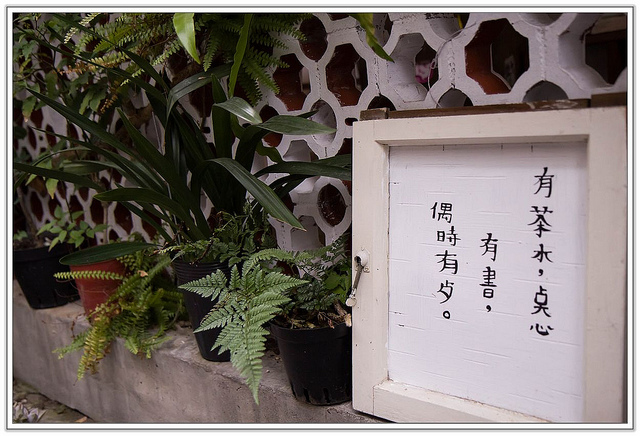 有茶水，奌心
有書，
偶時有歺。